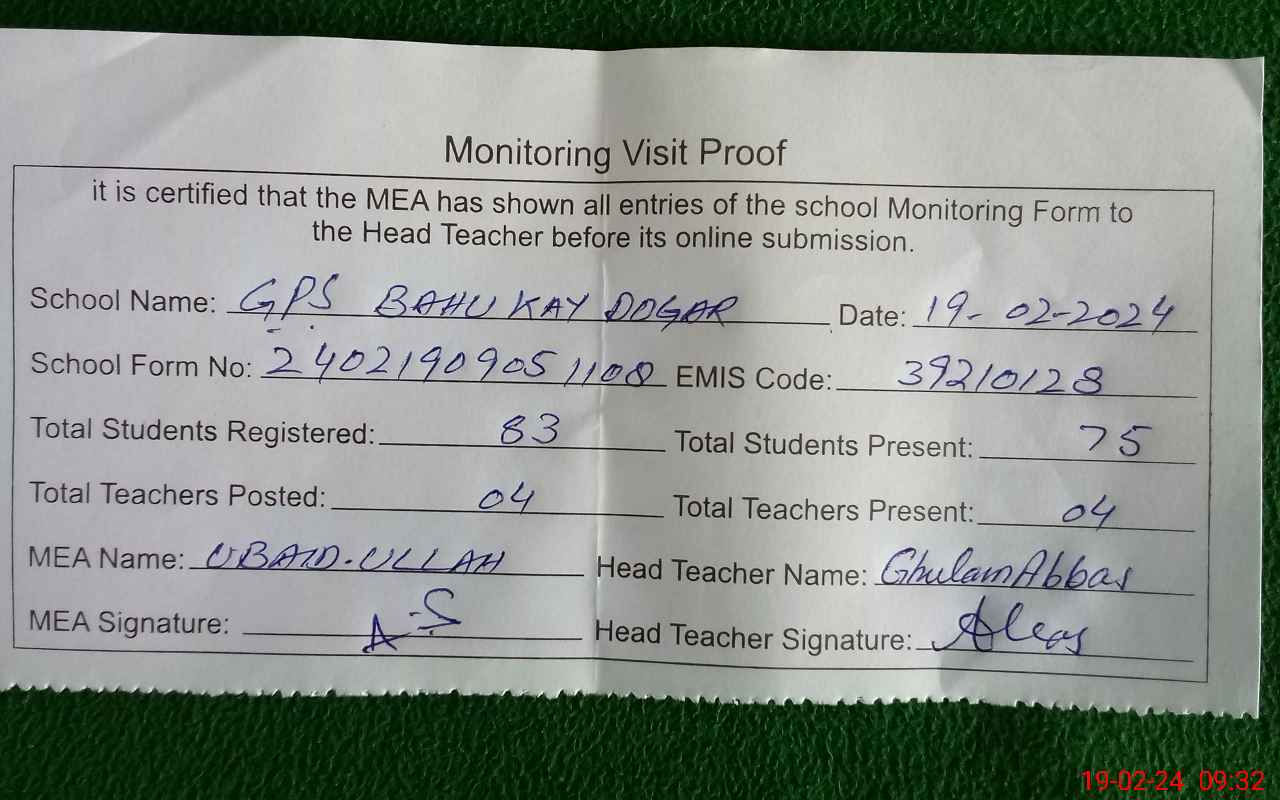 Monitoring Visit Proof
it is certified that the MEA has shown all entries of the school Monitoring Form to
the Head Teacher before its online submission.
School Name: GPS BAHU KAY DOGAR Date: 19-02-2024
School Form No: 2402190905 1108 EMIS Code: 39210128
Total Students Registered: 83 Total Students Present: 75
Total Teachers Posted: 04 Total Teachers Present: 04
MEA Name: UBAID-ULLAH Head Teacher Name: Ghulam Abbas
MEA Signature: Head Teacher Signature:
19-02-24 09:32